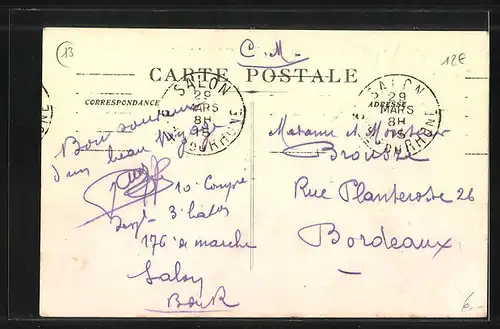 13
C. M.
12€
CARTE POSTALE
CORRESPONDANCE
ADRESSE
SALON
29
MARS
8H
15
SALON
29
MARS
8H
15
Bon souvenir
d'un beau
10e Compie
3e
176 de marche
Salon
B du R
Madame et Monsieur
Rue Planterose 26
Bordeaux
6.-